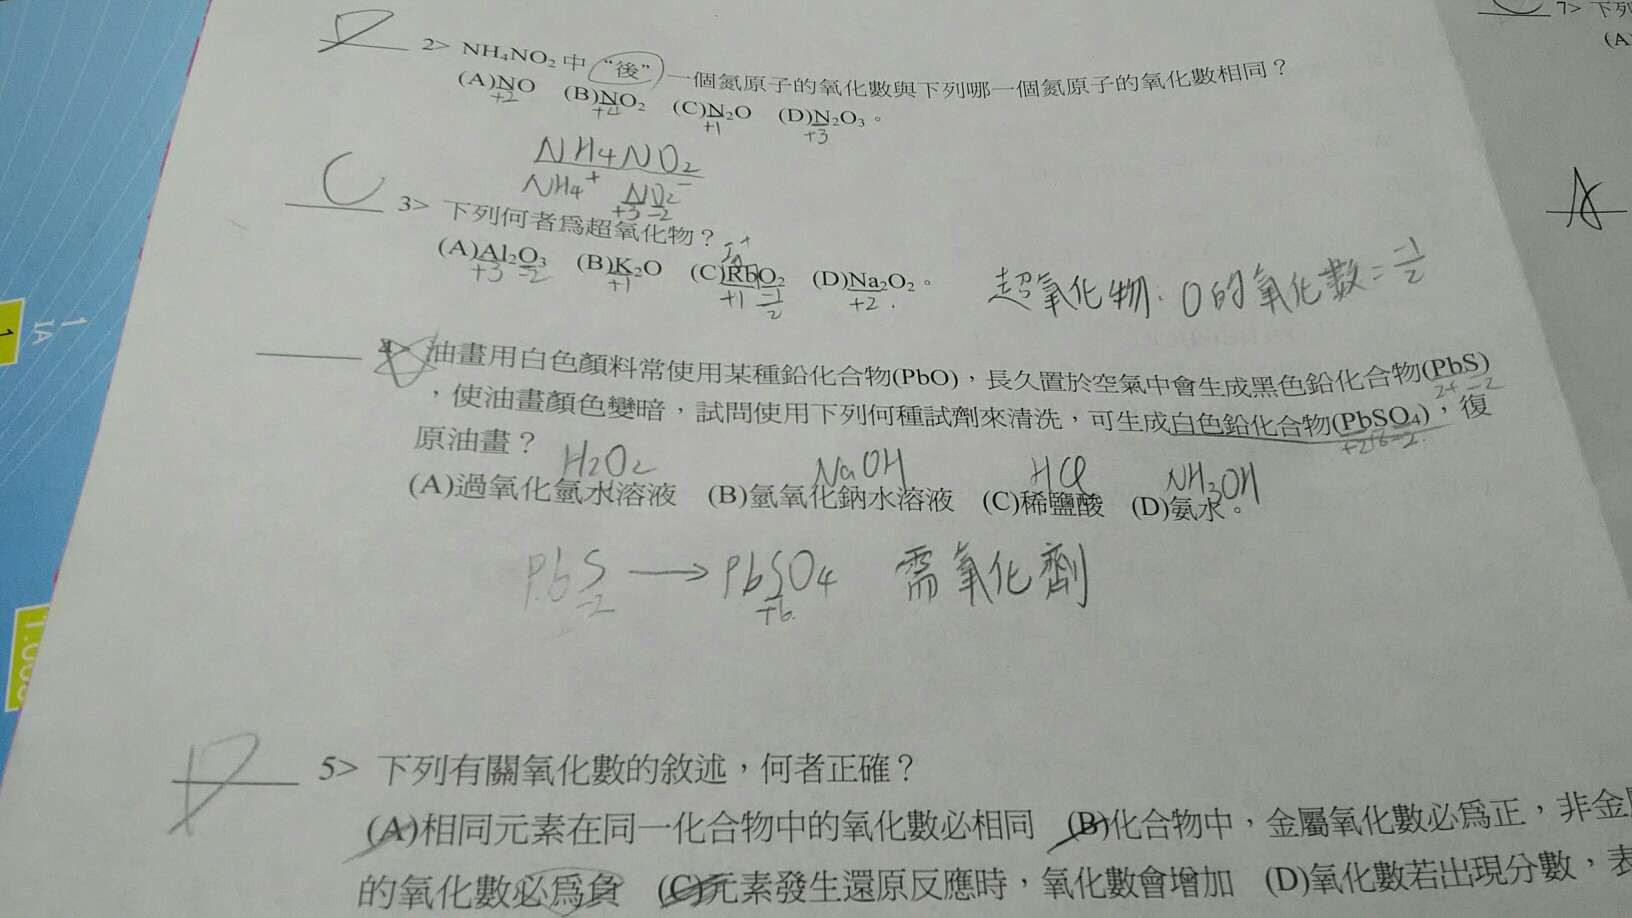 D 2> NH₄NO₂中“後”一個氮原子的氧化數與下列哪一個氮原子的氧化數相同？
(A)NO (B)NO₂ (C)N₂O (D)N₂O₃。
+2 +4 +1 +3
NH4NO2
NH4⁺ NO2⁻
+3 -2
C 3> 下列何者為超氧化物？
(A)Al₂O₃ (B)K₂O (C)RbO₂ (D)Na₂O₂。
+3 -2 +1 +1 -1/2 +2
超氧化物: O的氧化數= -1/2
油畫用白色顏料常使用某種鉛化合物(PbO)，長久置於空氣中會生成黑色鉛化合物(PbS)
2+ -2
，使油畫顏色變暗，試問使用下列何種試劑來清洗，可生成白色鉛化合物(PbSO₄)，復
+2 +6 -2
原油畫？
H2O2 NaOH HCl NH3OH
(A)過氧化氫水溶液 (B)氫氧化鈉水溶液 (C)稀鹽酸 (D)氨水。
PbS → PbSO4 需氧化劑
-2 +6
D 5> 下列有關氧化數的敘述，何者正確？
(A)相同元素在同一化合物中的氧化數必相同 (B)化合物中，金屬氧化數必為正，非金
的氧化數必為負 (C)元素發生還原反應時，氧化數會增加 (D)氧化數若出現分數，表
7> 下列
(A
A
1
IA
1